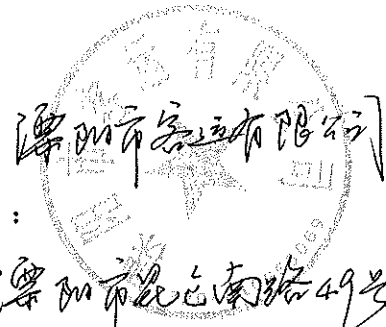 溧阳市客运有限公司
：
溧阳市昆仑南路49号